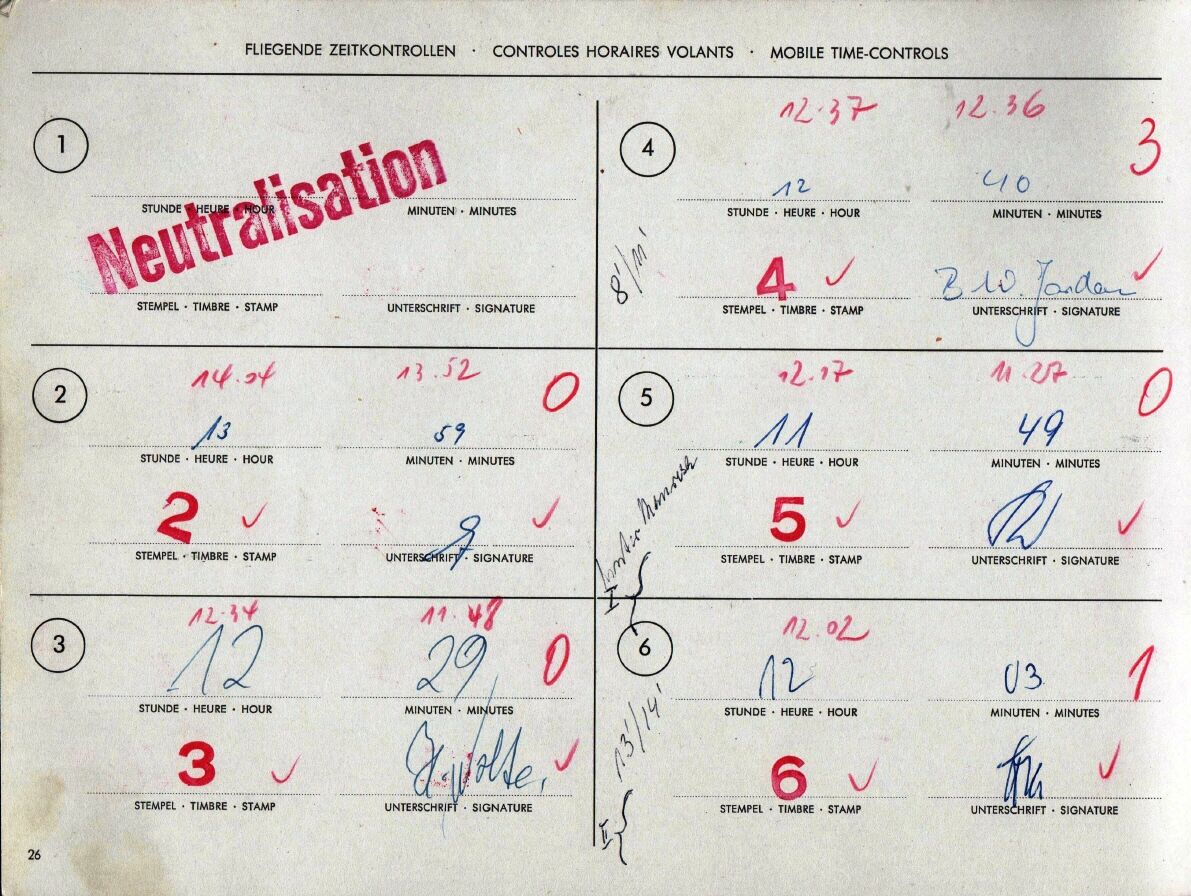 FLIEGENDE ZEITKONTROLLEN · CONTROLES HORAIRES VOLANTS · MOBILE TIME-CONTROLS
1
Neutralisation
STUNDE · HEURE · HOUR MINUTEN · MINUTES
STEMPEL · TIMBRE · STAMP UNTERSCHRIFT · SIGNATURE
2
14.04 13.52 0
13 59
STUNDE · HEURE · HOUR MINUTEN · MINUTES
2 ✓ ✓
STEMPEL · TIMBRE · STAMP UNTERSCHRIFT · SIGNATURE
3
12.34 11.48
12 29 0
STUNDE · HEURE · HOUR MINUTEN · MINUTES
3 ✓ H. Wolter ✓
STEMPEL · TIMBRE · STAMP UNTERSCHRIFT · SIGNATURE
26
12.37 12.36 3
4
12 40
STUNDE · HEURE · HOUR MINUTEN · MINUTES
8'/11'
4 ✓ B W. Jordan ✓
STEMPEL · TIMBRE · STAMP UNTERSCHRIFT · SIGNATURE
5
12.17 11.27 0
11 49
STUNDE · HEURE · HOUR MINUTEN · MINUTES
5 ✓ ✓
STEMPEL · TIMBRE · STAMP UNTERSCHRIFT · SIGNATURE
I
6
12.02
12 03 1
STUNDE · HEURE · HOUR MINUTEN · MINUTES
13'/14'
6 ✓ ✓
STEMPEL · TIMBRE · STAMP UNTERSCHRIFT · SIGNATURE
II